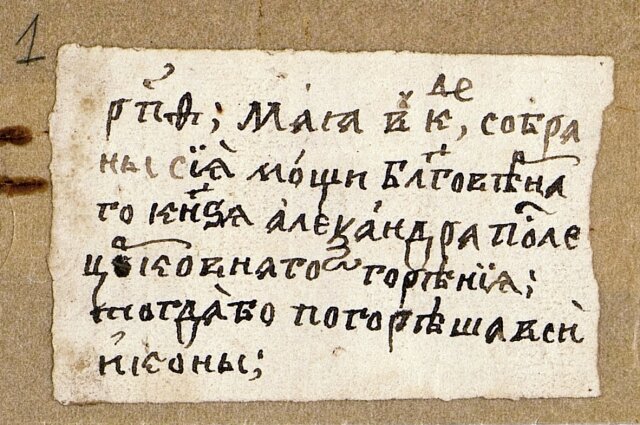 1
рп҃ѳ; Маіа в҃ к҃ де, собра
ны сїѧ̀ мо́щи бл҃говѣ́рна
го кн҃ѕѧ алеѯа́ндра по́ле
ц҃рковнаго з горѣнїѧ;
тогда̀бо погорѣша всѝ
и҆ко́ны;